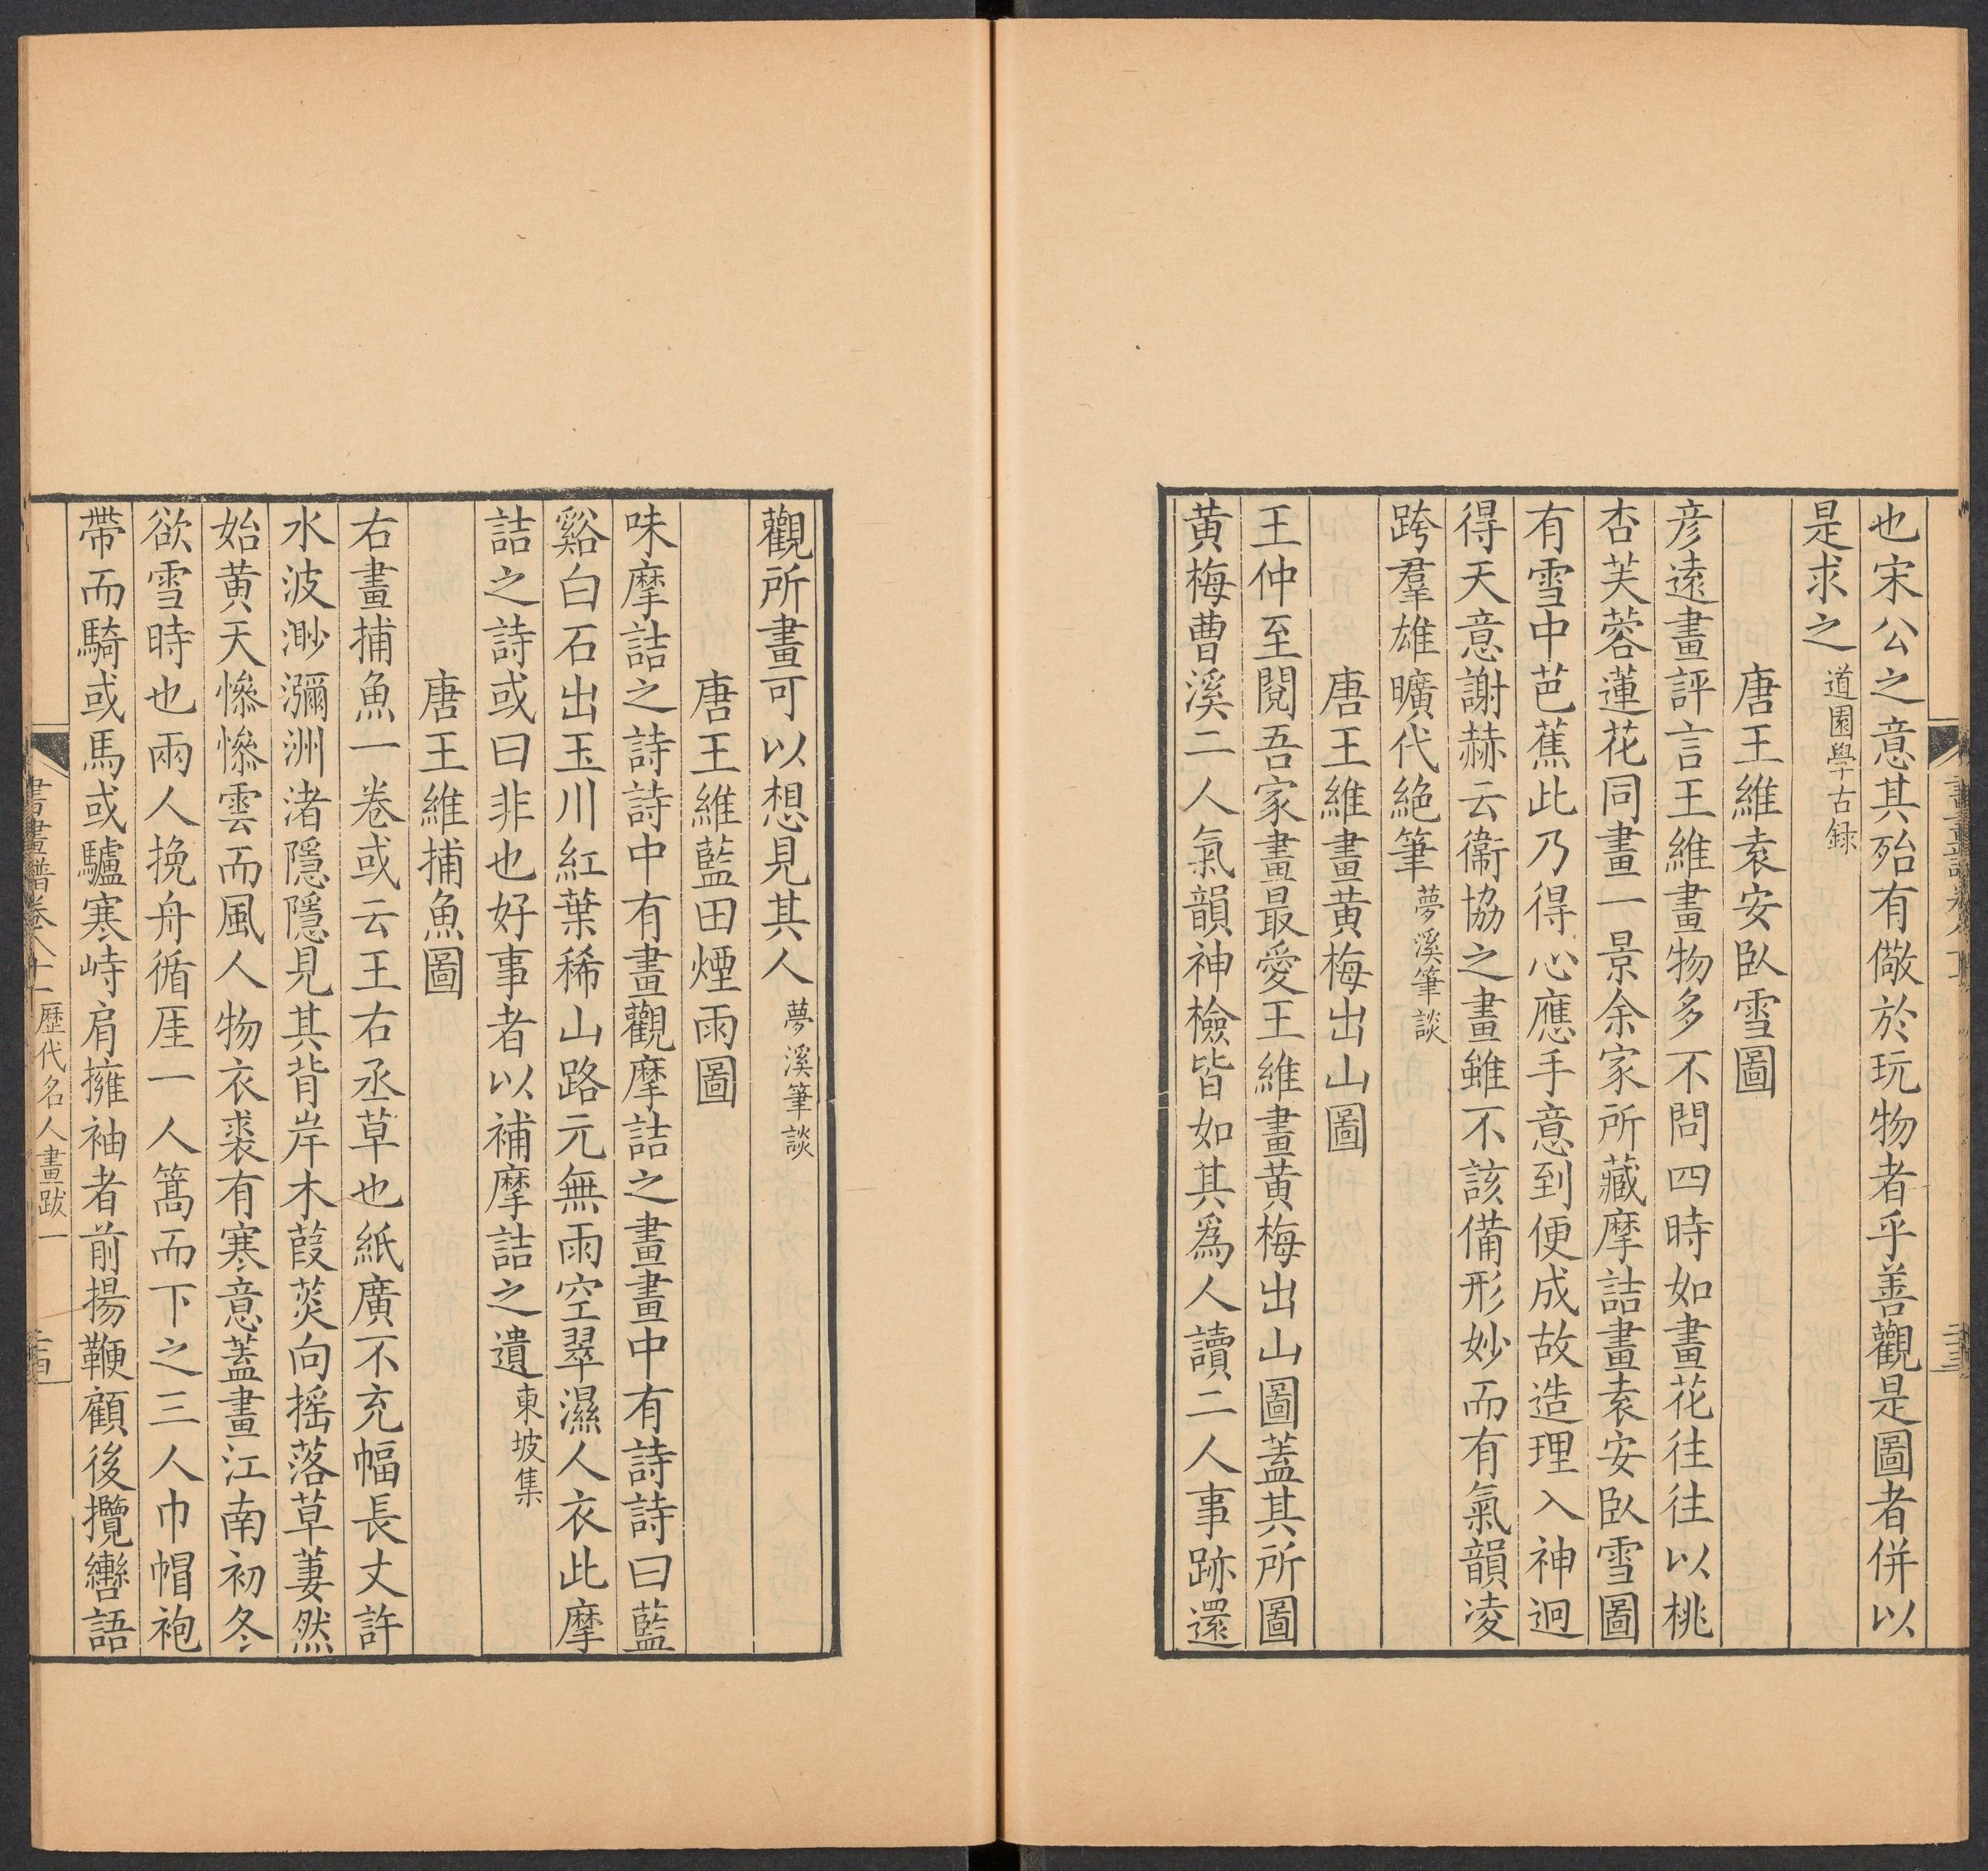 也宋公之意其殆有儆於玩物者乎善觀是圖者併以
是求之 道園學古録
唐王維袁安臥雪圖
彦遠畫評言王維畫物多不問四時如畫花往往以桃
杏芙蓉蓮花同畫一景余家所藏摩詰畫袁安臥雪圖
有雪中芭蕉此乃得心應手意到便成故造理入神迥
得天意謝赫云衞協之畫雖不該備形妙而有氣韻凌
跨羣雄曠代絶筆 夢溪筆談
唐王維畫黄梅出山圖
王仲至閱吾家畫最愛王維畫黄梅出山圖蓋其所圖
黄梅曹溪二人氣韻神檢皆如其爲人讀二人事跡還
觀所畫可以想見其人 夢溪筆談
唐王維藍田煙雨圖
味摩詰之詩詩中有畫觀摩詰之畫畫中有詩詩曰藍
谿白石出玉川紅葉稀山路元無雨空翠濕人衣此摩
詰之詩或曰非也好事者以補摩詰之遺 東坡集
唐王維捕魚圖
右畫捕魚一卷或云王右丞草也紙廣不充幅長丈許
水波渺瀰洲渚隱隱見其背岸木葭菼向摇落草萋然
始黄天慘慘雲而風人物衣裘有寒意蓋畫江南初冬
欲雪時也兩人挽舟循厓一人篙而下之三人巾帽袍
帶而騎或馬或驢寒峙肩擁袖者前揚鞭顧後攬轡語
書畫譜卷八十一 歷代名人畫跋一